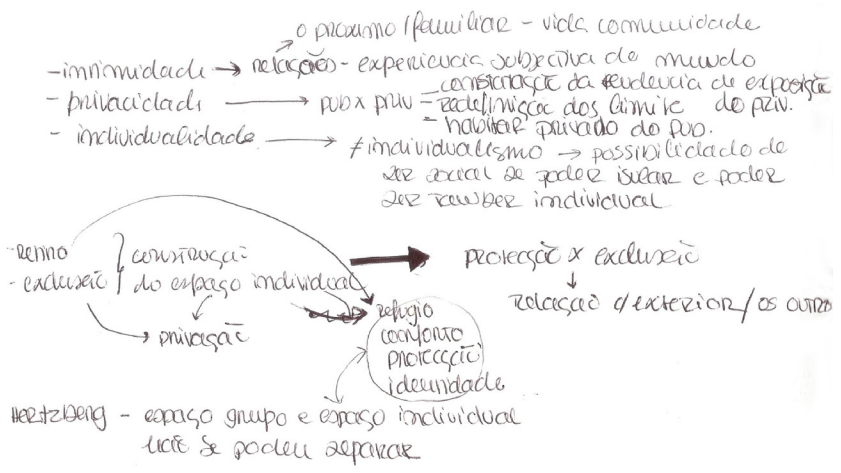 o próximo/familiar - vida comunidade
- intimidade → relações - experiencia subjectiva do mundo
- privacidade → pub x priv - constatação da tendencia de exposição
- redefinição dos limite do priv.
- habitar privado do pub.
- individualidade → ≠ individualismo → possibilidade de
ser social se poder isolar e poder
ser tambem individual
- retiro
- exclusão
construção
do espaço individual
→ privação
protecção x exclusão
↓
relação c/ exterior / os outro
refugio
conforto
protecção
identidade
Hertzberg - espaço grupo e espaço individual
não se podem separar